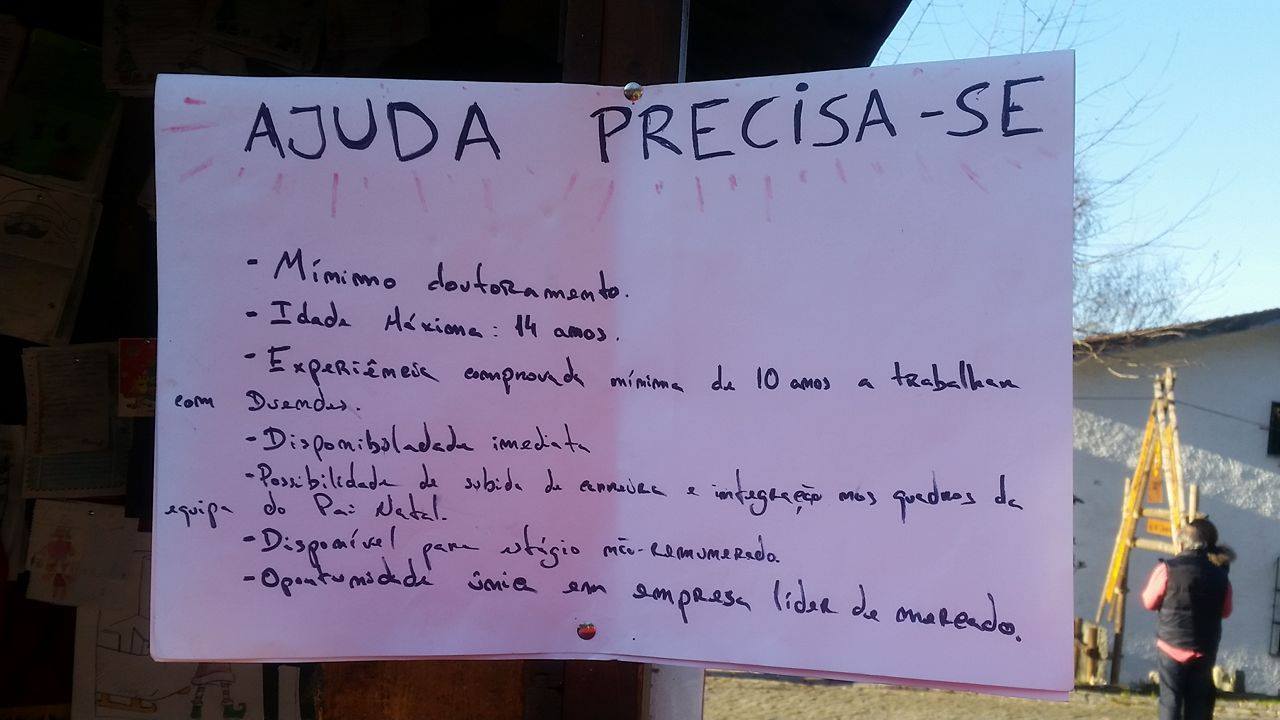 AJUDA PRECISA-SE
- Mínimo doutoramento.
- Idade Máxima: 14 anos.
- Experiência comprovada mínima de 10 anos a trabalhar
com Duendes.
- Disponiboladade imediata
- Possibilidade de subida de carreira e integração nos quadros da
equipa do Pai Natal.
- Disponível para estágio não-remunerado.
- Oportunidade única em empresa líder de mercado.